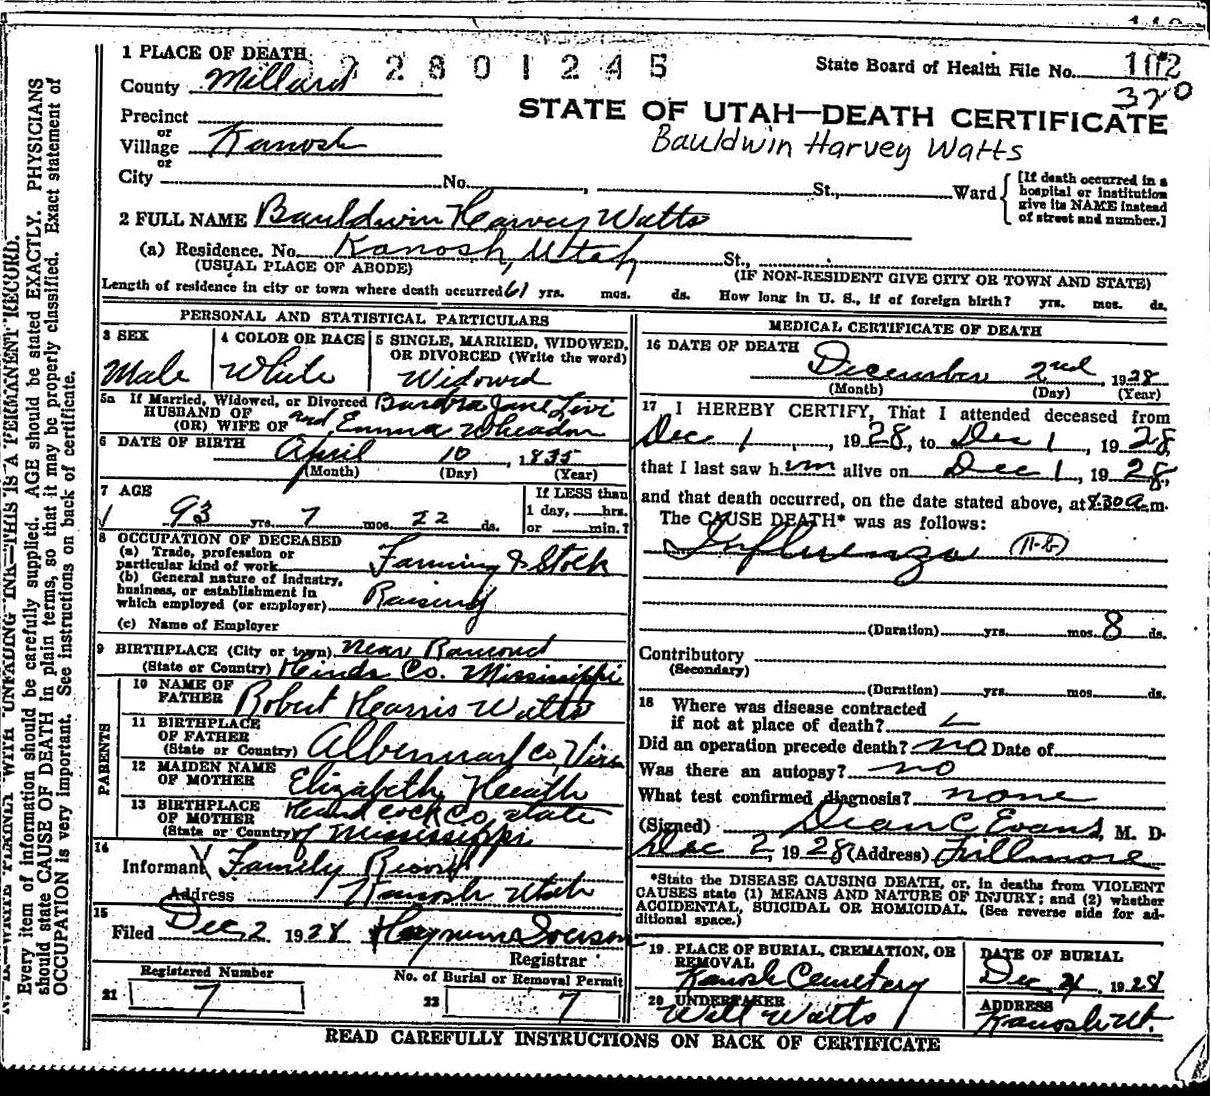 1 PLACE OF DEATH
2 2 8 0 1 2 4 5
State Board of Health File No. 102
320
County Millard
STATE OF UTAH—DEATH CERTIFICATE
Bauldwin Harvey Watts
Precinct
or
Village Kanosh
or
City No. , St., Ward
[If death occurred in a
hospital or institution
give its NAME instead
of street and number.]
2 FULL NAME Bauldwin Harvey Watts
(a) Residence. No. Kanosh, Utah St.,
(USUAL PLACE OF ABODE) (IF NON-RESIDENT GIVE CITY OR TOWN AND STATE)
Length of residence in city or town where death occurred 61 yrs. mos. ds. How long in U. S., if of foreign birth? yrs. mos. ds.
PERSONAL AND STATISTICAL PARTICULARS
3 SEX
Male
4 COLOR OR RACE
White
5 SINGLE, MARRIED, WIDOWED,
OR DIVORCED (Write the word)
Widowed
5a If Married, Widowed, or Divorced Barbra Jane Levi
HUSBAND OF and Emma Wheadon
(OR) WIFE OF
6 DATE OF BIRTH April 10, 1835
(Month) (Day) (Year)
7 AGE
93 yrs. 7 mos. 22 ds.
If LESS than
1 day, hrs.
or min.?
8 OCCUPATION OF DECEASED
(a) Trade, profession or
particular kind of work Farming & Stock
(b) General nature of industry,
business, or establishment in
which employed (or employer) Raising
(c) Name of Employer
9 BIRTHPLACE (City or town) near Ramond
(State or Country) Hinds Co. Mississippi
PARENTS
10 NAME OF
FATHER Robert Harris Watts
11 BIRTHPLACE
OF FATHER
(State or Country) Albermarl Co, Virn
12 MAIDEN NAME
OF MOTHER Elizabeth Heath
13 BIRTHPLACE
OF MOTHER
(State or Country) Hand cock Co, state
of Mississippi
14
Informant Family Record
Address Kanosh Utah
15
Filed Dec 2 1928
Registrar
Registered Number
21 7
No. of Burial or Removal Permit
22 7
MEDICAL CERTIFICATE OF DEATH
16 DATE OF DEATH
December 2nd, 1928
(Month) (Day) (Year)
17 I HEREBY CERTIFY, That I attended deceased from
Dec 1, 1928, to Dec 1, 1928,
that I last saw him alive on Dec 1, 1928,
and that death occurred, on the date stated above, at 8.30 a.m.
The CAUSE DEATH* was as follows:
Influenza (11-b)
(Duration) yrs. mos. 8 ds.
Contributory
(Secondary)
(Duration) yrs. mos. ds.
18 Where was disease contracted
if not at place of death?
Did an operation precede death? no Date of
Was there an autopsy? no
What test confirmed diagnosis? none
(Signed) Dean C Evans, M. D.
Dec 2, 1928 (Address) Fillmore
*State the DISEASE CAUSING DEATH, or, in deaths from VIOLENT
CAUSES state (1) MEANS AND NATURE OF INJURY; and (2) whether
ACCIDENTAL, SUICIDAL OR HOMICIDAL. (See reverse side for ad-
ditional space.)
19 PLACE OF BURIAL, CREMATION, OR
REMOVAL
Kanosh Cemetery
DATE OF BURIAL
Dec 4, 1928
20 UNDERTAKER
Will Watts
ADDRESS
Kanosh Ut.
READ CAREFULLY INSTRUCTIONS ON BACK OF CERTIFICATE
N. B.—WRITE PLAINLY WITH UNFADING INK—THIS IS A PERMANENT RECORD.
Every item of information should be carefully supplied. AGE should be stated EXACTLY. PHYSICIANS
should state CAUSE OF DEATH in plain terms, so that it may be properly classified. Exact statement of
OCCUPATION is very important. See instructions on back of certificate.